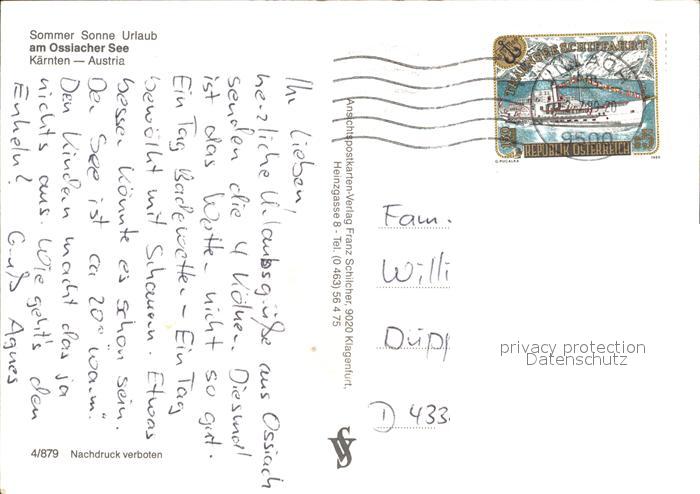 Sommer Sonne Urlaub
am Ossiacher See
Kärnten — Austria
Ihr Lieben,
herzliche Urlaubsgrüße aus Ossiach
senden die 4 Kölner. Diesmal
ist das Wetter nicht so gut.
Ein Tag Badewetter – Ein Tag
bewölkt mit Schauern. Etwas
besser könnte es schon sein.
Der See ist ca 20° "warm".
Den Kindern macht das ja
nichts aus. Wie geht's den
Enkeln?
Gruß Agnes
4/879 Nachdruck verboten
Ansichtspostkarten-Verlag Franz Schilcher, 9020 Klagenfurt,
Heinzgasse 8 - Tel. (0 463) 56 4 75
REPUBLIK ÖSTERREICH
G. PUCALKA 1989
9500
Fam.
Willi
Düpp
D 433
privacy protection
Datenschutz